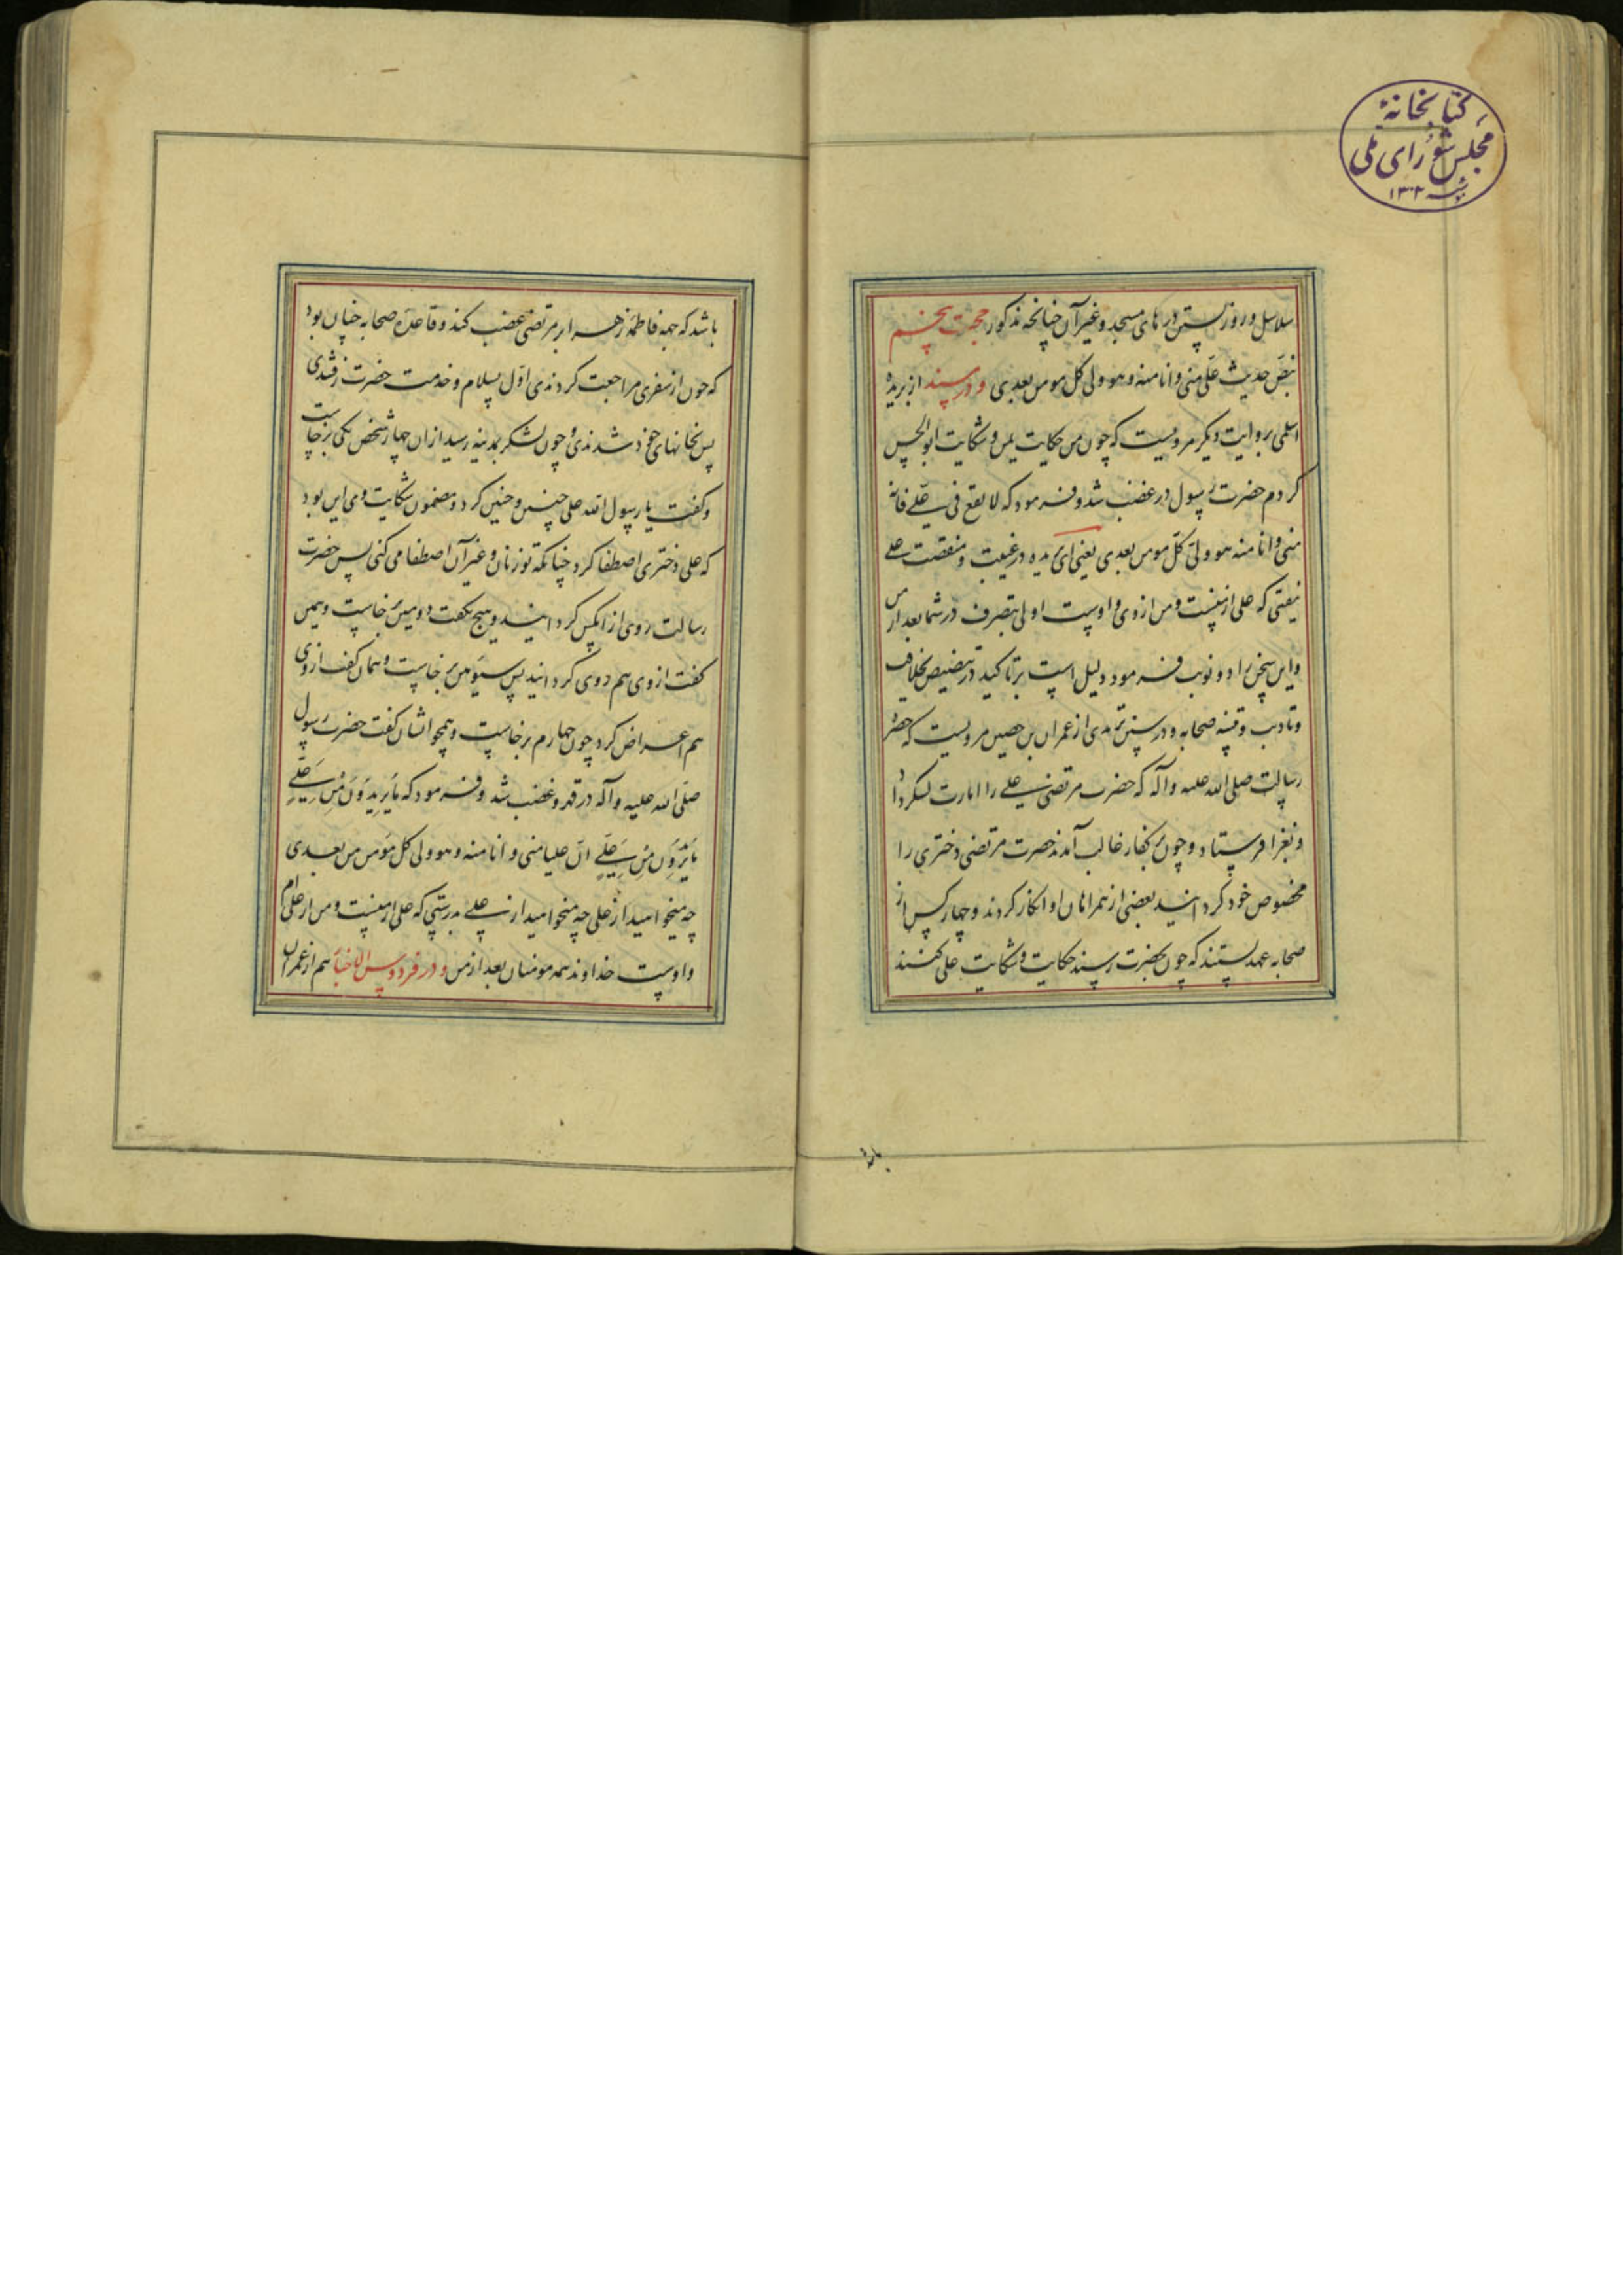 کتابخانهٔ
مجلس شورای ملی
سنه ۱۳۰۲
سلاسل و روز بستن درهای مسجد و غیر آن چنانچه مذکور حجت پنجم
بنص حدیث علی منی و انا منه و هو ولی کل مومن بعدی و در مسند از بریده
اسلمی بروایت دیگر مرویست که چون من حکایت یمن و شکایت ابوالحسن
کردم حضرت رسول در غضب شد و فرمود که لا تقع فی علی فانه
منی و انا منه هو ولی کل مومن بعدی یعنی ای بریده در غیبت و منقصت علی
نیفتی که علی از منیست و من از وی و اوست اولی بتصرف در شما بعد از من
و این سخن را دو نوبت فرمود دلیل است بر تاکید در تنصیص بخلافت
و تادیب و تنبیه صحابه و در سنن ترمدی از عمران بن حصین مرویست که حضرة
رسالت صلی الله علیه و آله که حضرت مرتضی علی را امارت لشکر داد
و بغزا فرستاد و چون بر کفار غالب آمدند حضرت مرتضی دختری را
مخصوص خود گردانید بعضی از همراهان او انکار کردند و چهار کس از
صحابه عهد بستند که چون بحضرت رسند حکایت و شکایت علی کنند
باشد که بجهة فاطمه زهرا بر مرتضی غضب کند و قاعده صحابه چنان بود
که چون از سفری مراجعت کردندی اول بسلام و خدمت حضرت رفتندی
پس بخانهای خود شدندی و چون لشکر بمدینه رسید از ان چهار شخص یکی برخاست
و گفت یا رسول الله علی چنین و چنین کرد و مضمون شکایت وی این بود
که علی دختری اصطفا کرد چنانکه تو زنان و غیر آن اصطفا می کنی پس حضرت
رسالت روی از آنکس گردانید و هیچ نگفت دومین برخاست و همین
گفت از وی هم روی گردانید پس سیومین برخاست و همان گفت از وی
هم اعراض کرد چون چهارم برخاست و همچو ایشان گفت حضرت رسول
صلی الله علیه و آله در قهر و غضب شد و فرمود که ما یریدون من علی
ما یریدون من علی ان علیا منی و انا منه و هو ولی کل مؤمن من بعدی
چه میخواهید از علی چه میخواهید از علی بدرستی که علی از منیست و من از علی ام
و اوست خداوند همه مومنان بعد از من و در فردوس الاخبار هم از عمران